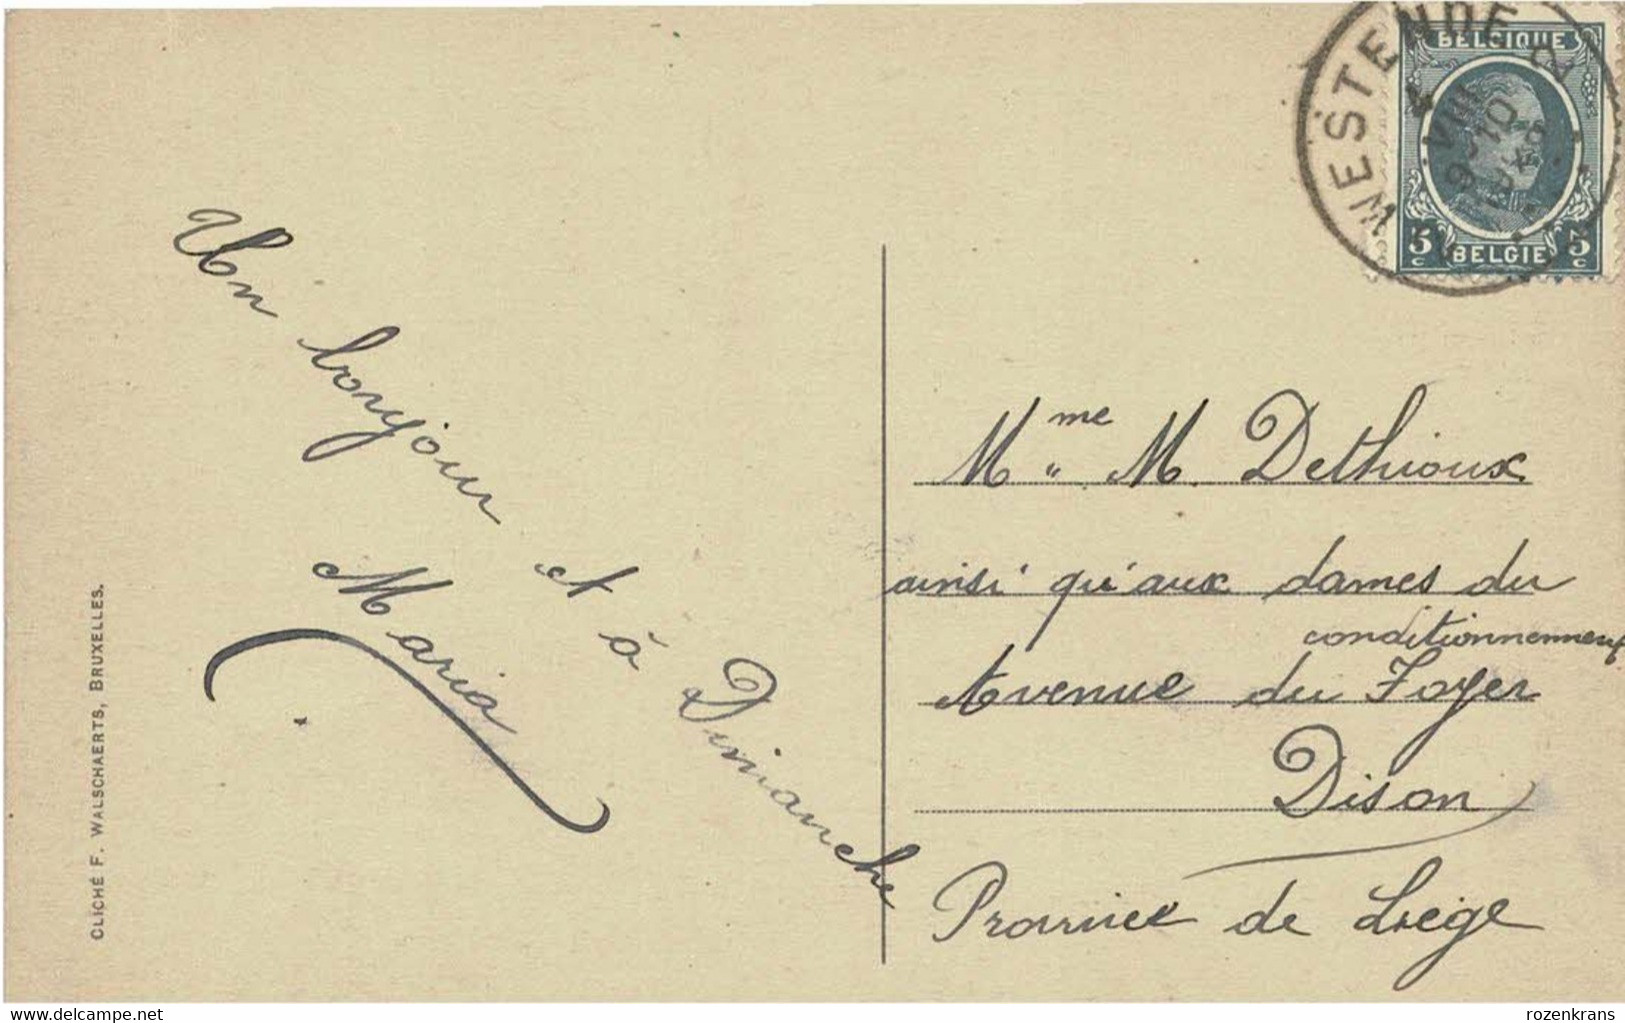 Un bonjour et à Dimanche
Maria
CLICHÉ F. WALSCHAERTS, BRUXELLES.
WESTENDE
BELGIQUE
5c BELGIE 5c
Mme M. Dethioux
ainsi qu'aux dames du
conditionnement
Avenue du Foyer
Dison
Province de Liège
www.delcampe.net
rozenkrans